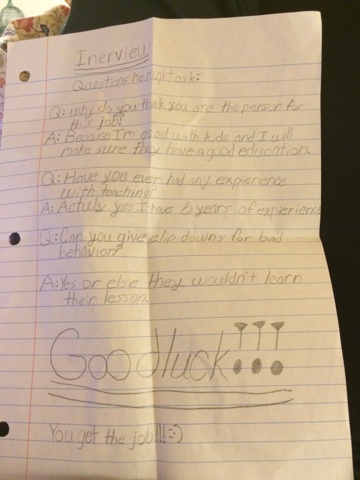 Inerview
Questions he might ask:
Q: why do you think you are the person for
this job?
A: Because I'm good with kids and I will
make sure they have a good education.
Q: Have you ever had any expierience
with teaching?
A: Actuly yes I have 6 years of expierience
Q: Can you give clip downs for bad
behavior?
A: Yes or else they wouldn't learn
their lesson.
Goodluck!!!
You get the job!!!! :-)